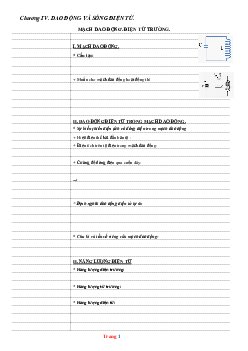 Chương IV. DAO ĐỘNG VÀ SÓNG ĐIỆN TỪ.
MẠCH DAO ĐỘNG. ĐIỆN TỪ TRƯỜNG.
I. MẠCH DAO ĐỘNG.
* Cấu tạo:
C
L
* Muốn cho mạch dao động hoạt động thì
II. DAO ĐỘNG ĐIỆN TỪ TRONG MẠCH DAO ĐỘNG.
* Sự biến thiên điện tích và dòng điện trong mạch dao động
+ Điện tích tức thời
* Cường độ dòng điện qua cuộn dây.
* Định nghĩa dao động điện từ tự do
* Chu kì và tần số riêng của mạch dao động:
III. NĂNG LƯỢNG ĐIỆN TỪ
* Năng lượng điện trường:
* Năng lượng từ trường:
* Năng lượng điện từ:
Trang 1